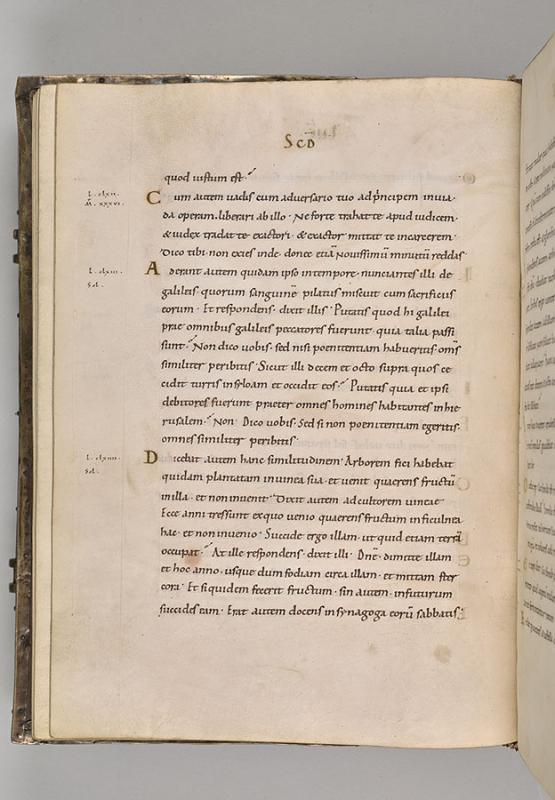 SCD
quod iustum est
L. clxii.
M. xxxvi.
Cum autem uadis cum aduersario tuo ad pͥncipem inuia·
da operam liberari ab illo· Ne forte trahat te apud iudicem·
& iudex tradat te exactori· & exactor mittat te incarcerem·
Dico tibi non exies inde· donec etiā nouissimū minutū reddas·
L. clxiii.
Sol.
Aderant autem quidam ipso intempore· nunciantes illi de
galileis quorum sanguinē pilatus miscuit cum sacrificiis
eorum· Et respondens· dixit illis· Putatis quod hi galilei
prae omnibus galileis peccatores fuerunt· quia talia passi
sunt· Non dico uobis· sed nisi poenitentiam habueritis· om̄s
similiter peribitis· Sicut illi decem et octo supra quos ce
cidit turris insiloam et occidit eos· Putatis quia et ipsi
debitores fuerunt praeter omnes homines habitantes inhie
rusalem· Non· Dico uobis· Sed si non poenitentiam egeritis·
omnes similiter peribitis·
L. clxiiii.
Sol.
Dicebat autem hanc similitudinem· Arborem fici habebat
quidam plantatam inuinea sua· et uenit quaerens fructū
inilla· et non inuenit· Dixit autem ad cultorem uineae·
Ecce anni tres sunt exquo uenio quaerens fructum inficulnea
hac· et non inuenio· Succide ergo illam· ut quid etiam terrā
occupat· At ille respondens· dixit illi· Dn̄e· dimitte illam
et hoc anno· usque dum fodiam circa illam· et mittam ster
cora· Et siquidem fecerit fructum· sin autem· infuturum
succides eam· Erat autem docens insynagoga eorū sabbatis·